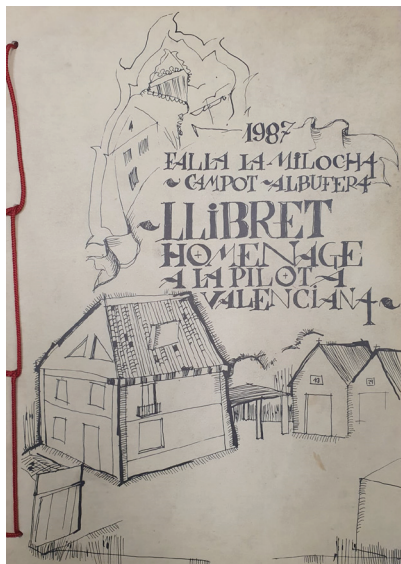 1987
FALLA LA MILOCHA
CAMPOT - ALBUFERA
LLiBRET
HOMENAGE
A LA PILOTA
VALENCIANA